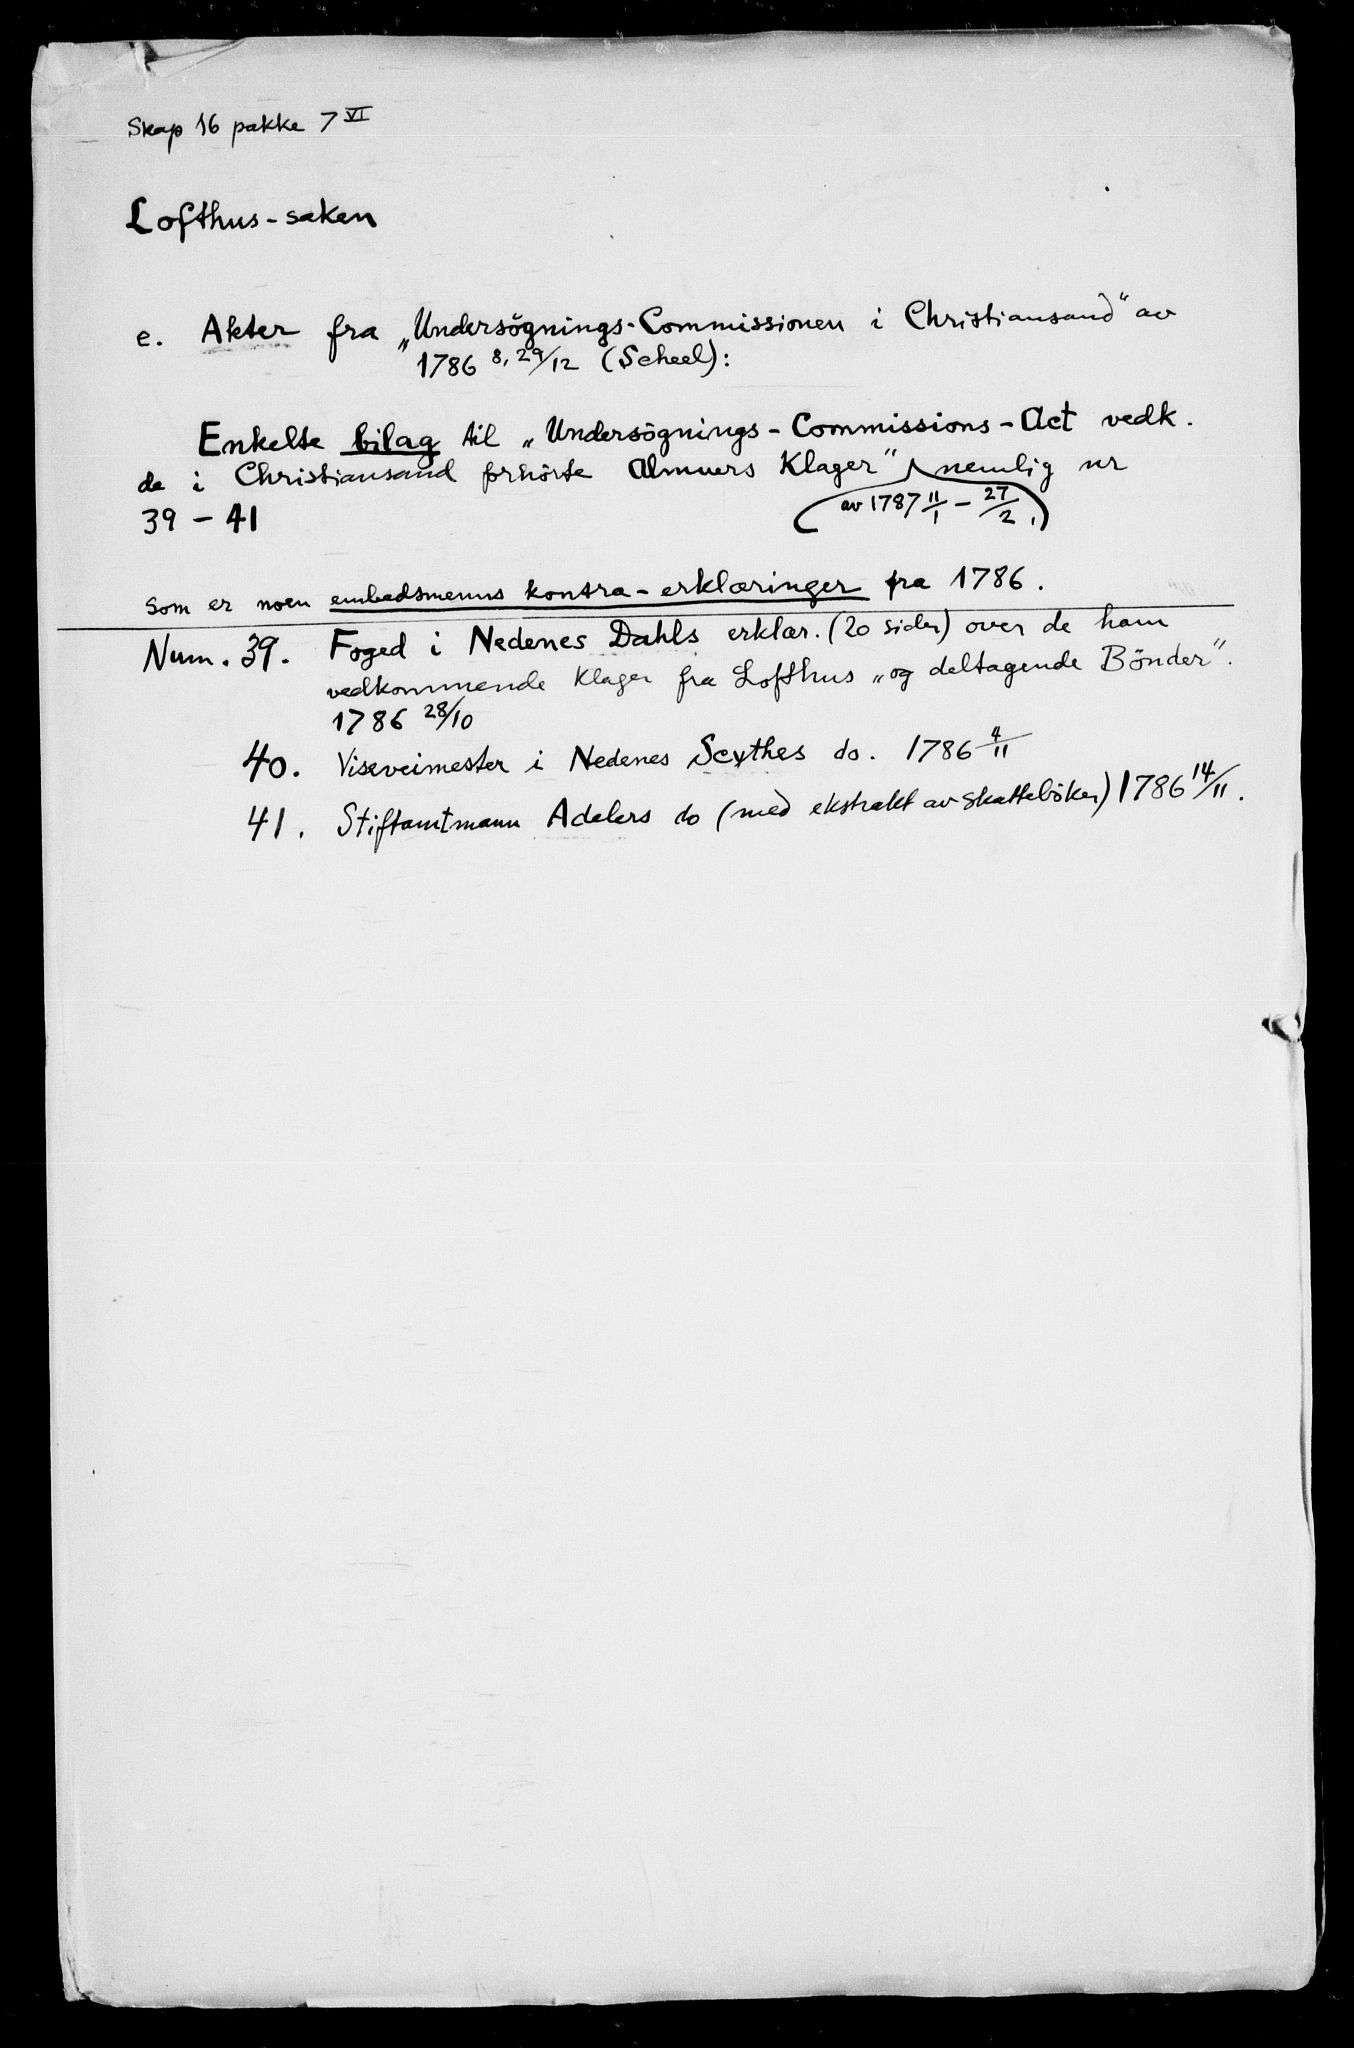 Skap 16 pakke 7 VI
Lofthus-saken
e. Akter fra „Undersögnings-Commissionen i Christiansand" av
1786 8, 29/12 (Scheel):
Enkelte bilag til „Undersögnings-Commissions-Act vedk.
de i Christiansand forhörte Almuers Klager" nemlig nr
(av 1787 11/1 - 27/2,)
39 - 41
som er noen embedsmenns kontra-erklæringer fra 1786.
Num. 39. Foged i Nedenes Dahls erklær. (20 sider) over de ham
vedkommende Klager fra Lofthus „og deltagende Bönder".
1786 28/10
40. Viseveimester i Nedenes Scythes do. 1786 4/11
41. Stiftamtmann Adelers do (med ekstrakt av skatteböker) 1786 14/11.